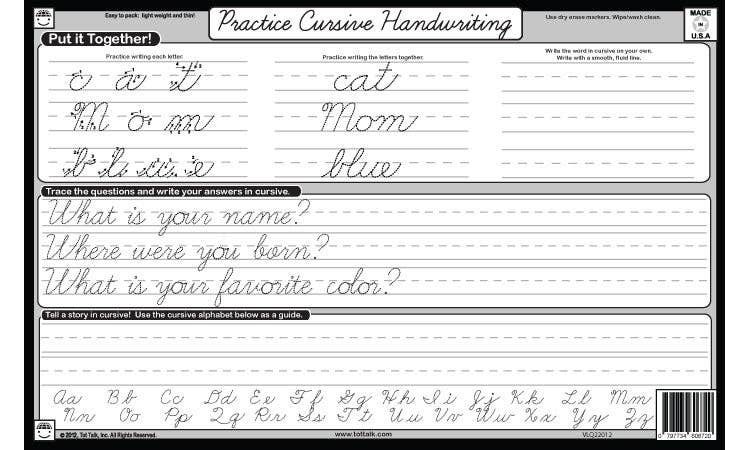 Easy to pack: light weight and thin!
Practice Cursive Handwriting
Use dry erase markers. Wipe/wash clean.
MADE
IN
U.S.A
Put it Together!
Practice writing each letter.
Practice writing the letters together.
Write the word in cursive on your own.
Write with a smooth, fluid line.
c a t cat
M o m Mom
b l u e blue
Trace the questions and write your answers in cursive.
What is your name?
Where were you born?
What is your favorite color?
Tell a story in cursive! Use the cursive alphabet below as a guide.
Aa Bb Cc Dd Ee Ff Gg Hh Ii Jj Kk Ll Mm
Nn Oo Pp Qq Rr Ss Tt Uu Vv Ww Xx Yy Zz
© 2012, Tot Talk, Inc. All Rights Reserved.
www.tottalk.com
VLQ22012
0 797734 608720